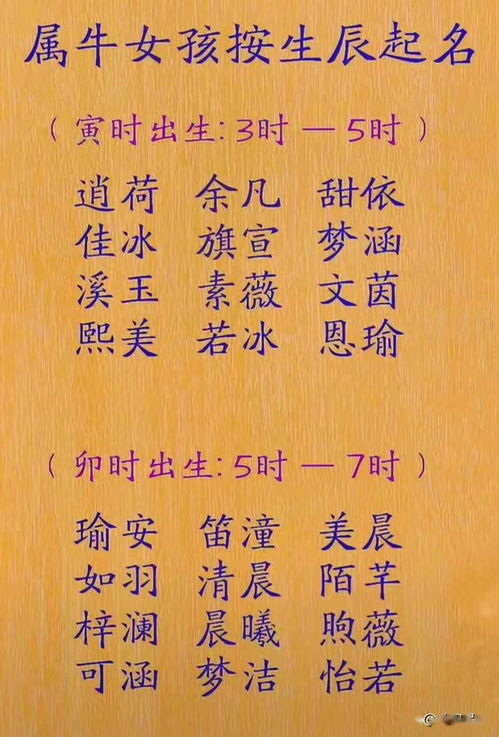 属牛女孩按生辰起名
（寅时出生:3时 — 5时）
逍荷 余凡 甜依
佳冰 旗宣 梦涵
溪玉 素薇 文茵
熙美 若冰 恩瑜
（卯时出生:5时 — 7时）
瑜安 笛潼 美晨
如羽 清晨 陌芊
梓澜 晨曦 煦薇
可涵 梦洁 怡若